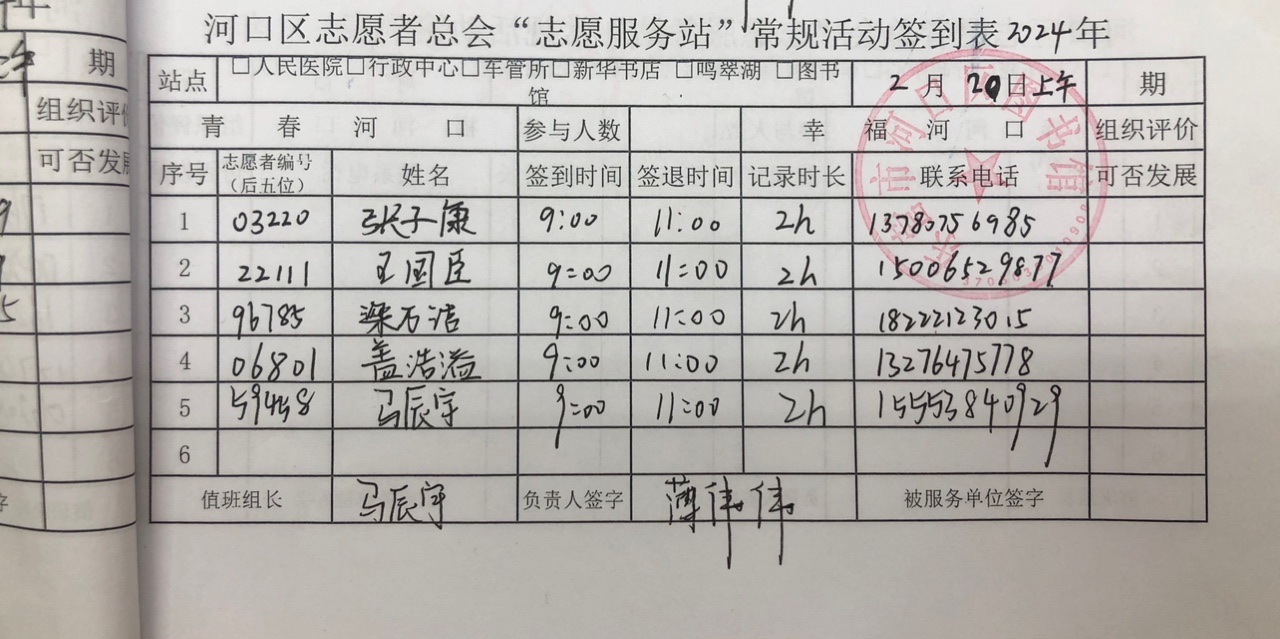 河口区志愿者总会“志愿服务站”常规活动签到表2024年
站点 □人民医院□行政中心□车管所□新华书店 □鸣翠湖 □图书馆 2月20日上午 期
青春河口 参与人数 幸福河口 组织评价
序号 志愿者编号（后五位） 姓名 签到时间 签退时间 记录时长 联系电话 可否发展
1 03220 张子康 9:00 11:00 2h 13780756985
2 22111 王国臣 9:00 11:00 2h 15006529877
3 96785 梁石洁 9:00 11:00 2h 18222123015
4 06801 盖浩溢 9:00 11:00 2h 13276475778
5 59458 马辰宇 9:00 11:00 2h 15553840929
6
值班组长 马辰宇 负责人签字 薄伟伟 被服务单位签字
年
期
组织评价
可否发展
市河口区图书馆